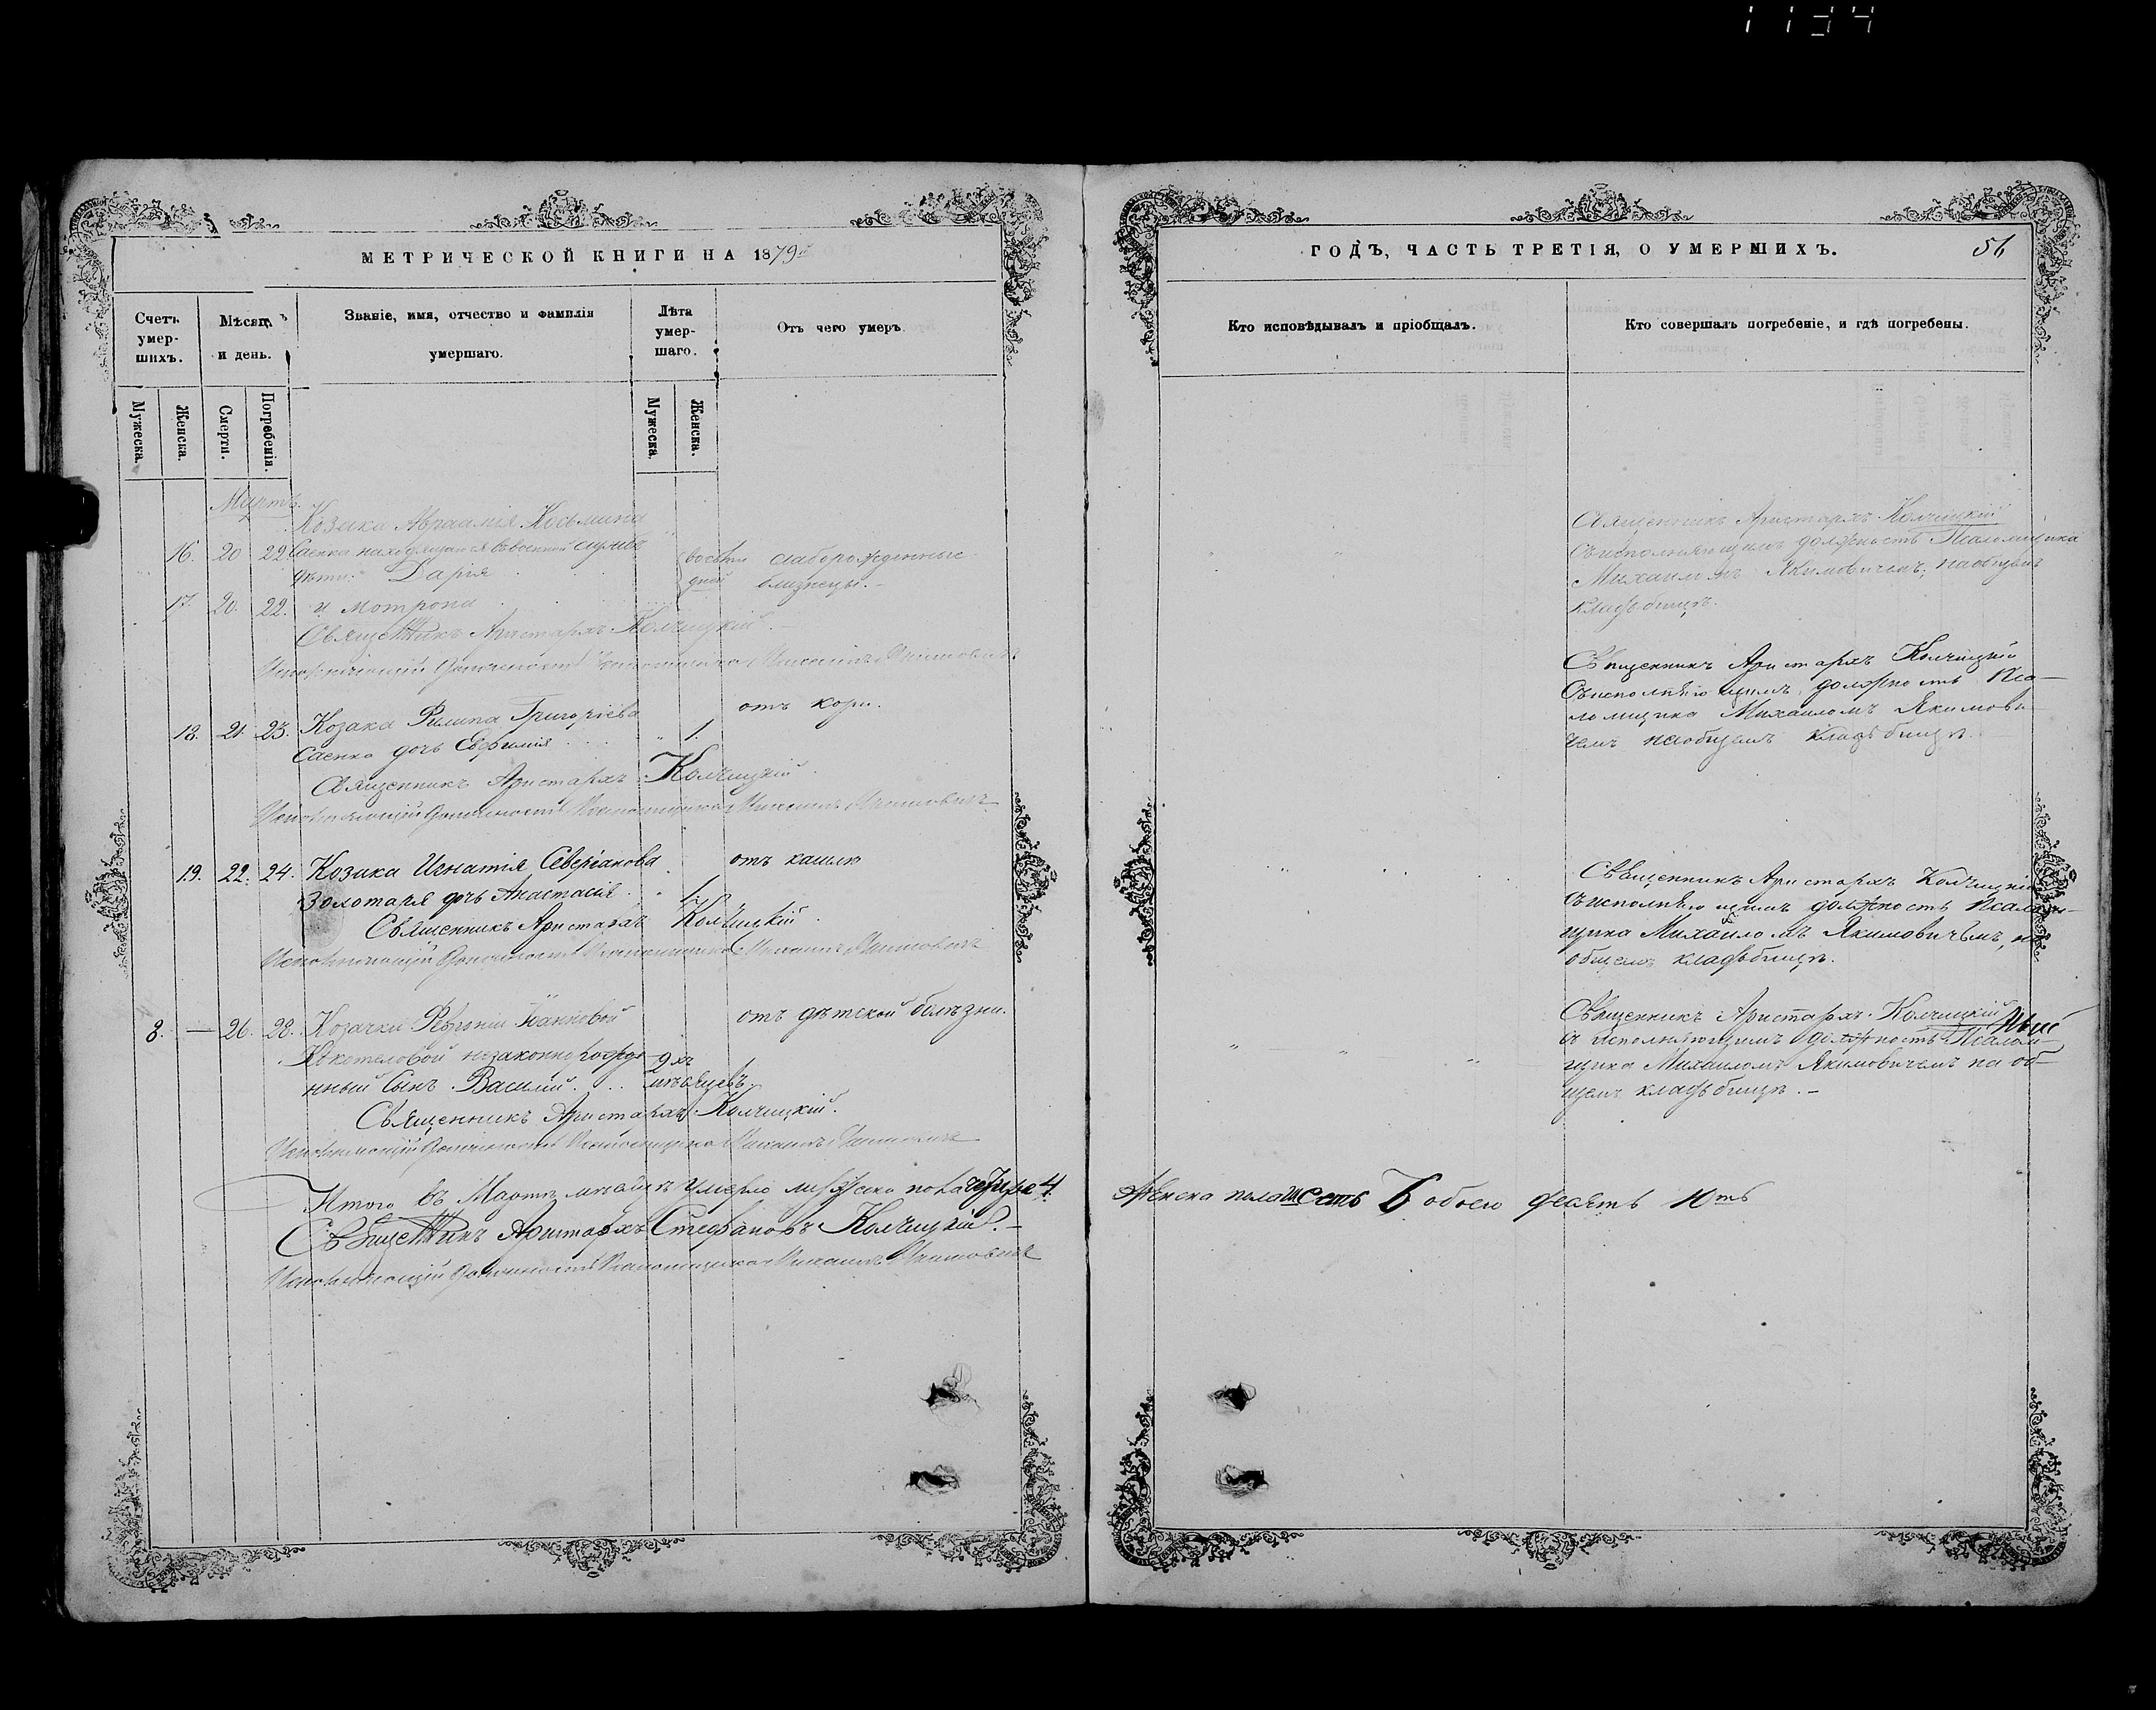 МЕТРИЧЕСКОЙ КНИГИ НА 1879й
Счетъ умершихъ.
Мѣсяцъ и день.
Званіе, имя, отчество и фамилія умершаго.
Лѣта умершаго.
Отъ чего умеръ.
Мужеска.
Женска.
Смерти.
Погребенія.
Мужеска.
Женска.
Мартъ.
Козака Авраамія Косьмина
16. 20 22. Саенка находящагося въ военной службѣ восьми слаборожденные
дѣти: Дарія дней близнецы.-
17. 20. 22. и Мотрона
Священникъ Аристархъ Колчицкій.-
Исполняющій Должность Псаломщика Михаилъ Якимовичъ
18. 21. 23. Козака Филипа Григоріева отъ кори.
Саенко дочь Евфимія . . . " 1.
Священникъ Аристархъ Колчицкій.
Исполняющій Должность Псаломщика Михаилъ Якимовичъ
19. 22. 24. Козака Игнатія Северіанова отъ кашлю
Золотаря дочь Анастасія . " 1.
Священникъ Аристархъ Колчицкій.
Исполняющій Должность Псаломщика Михаилъ Якимовичъ
8. — 26. 28. Козачки Іоанновой отъ дѣтской болѣзни.
незаконнорожде- 9 хъ
нный Сынъ Василій. . . мѣсяцевъ.
Священникъ Аристархъ Колчицкій.
Исполняющій Должность Псаломщика Михаилъ Якимовичъ
Итого въ Мартѣ мѣсяцѣ умерло мужеска пола четыре 4.
Священникъ Аристархъ Стефановъ Колчицкій.-
Исполняющій Должность Псаломщика Михаилъ Якимовичъ
ГОДЪ, ЧАСТЬ ТРЕТІЯ, О УМЕРШИХЪ.
56
Кто исповѣдывалъ и пріобщалъ.
Кто совершалъ погребеніе, и гдѣ погребены.
Священникъ Аристархъ Колчицкій
Съ исполняющимъ должность Псаломщика
Михаиломъ Якимовичемъ, на общемъ
кладбищѣ.
Священникъ Аристархъ Колчицкій
Съ исполняющимъ должность Пса-
ломщика Михаиломъ Якимови-
чемъ на общемъ кладбищѣ.
Священникъ Аристархъ Колчицкій
Съ исполняющимъ должность Псалом-
щика Михаиломъ Якимовичемъ, на
общемъ кладбищѣ.
Священникъ Аристархъ Колчицкій
съ исполняющимъ должность Псалом-
щика Михаиломъ Якимовичемъ на об-
щемъ кладбищѣ.-
Женска пола шесть 6 обоего десять 10ть